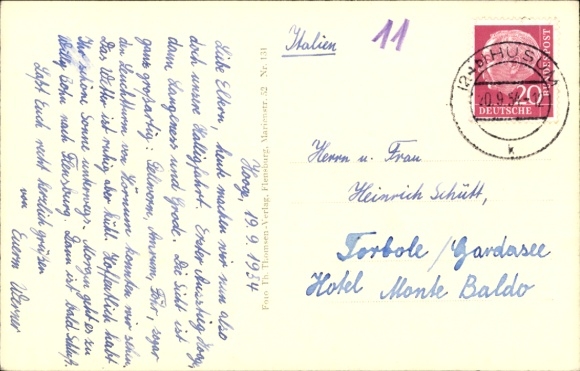 Hooge, 19.9.1954
Liebe Eltern, heute machen wir nun also
doch unsere Halligfahrt. Erster Ausstieg Hooge,
dann Langeness und Gröde. Die Sicht ist
ganz großartig: Pellworm, Amrum, Föhr, sogar
den Leuchtturm von Hörnum konnten wir sehen.
Das Wetter ist ruhig aber kühl. Hoffentlich habt
Ihr schöne Sonne unterwegs. Morgen geht es zu
nach Flensburg. Dann ist bald Schluß.
Laßt Euch recht herzlich grüßen
von Eurem Werner
Foto: Th. Thomsen-Verlag, Flensburg, Marienstr. 52 Nr. 131
Italien
11
DEUTSCHE
BUNDESPOST
20
HUSUM
k
Herrn u. Frau
Heinrich Schütt,
Torbole / Gardasee
Hotel Monte Baldo